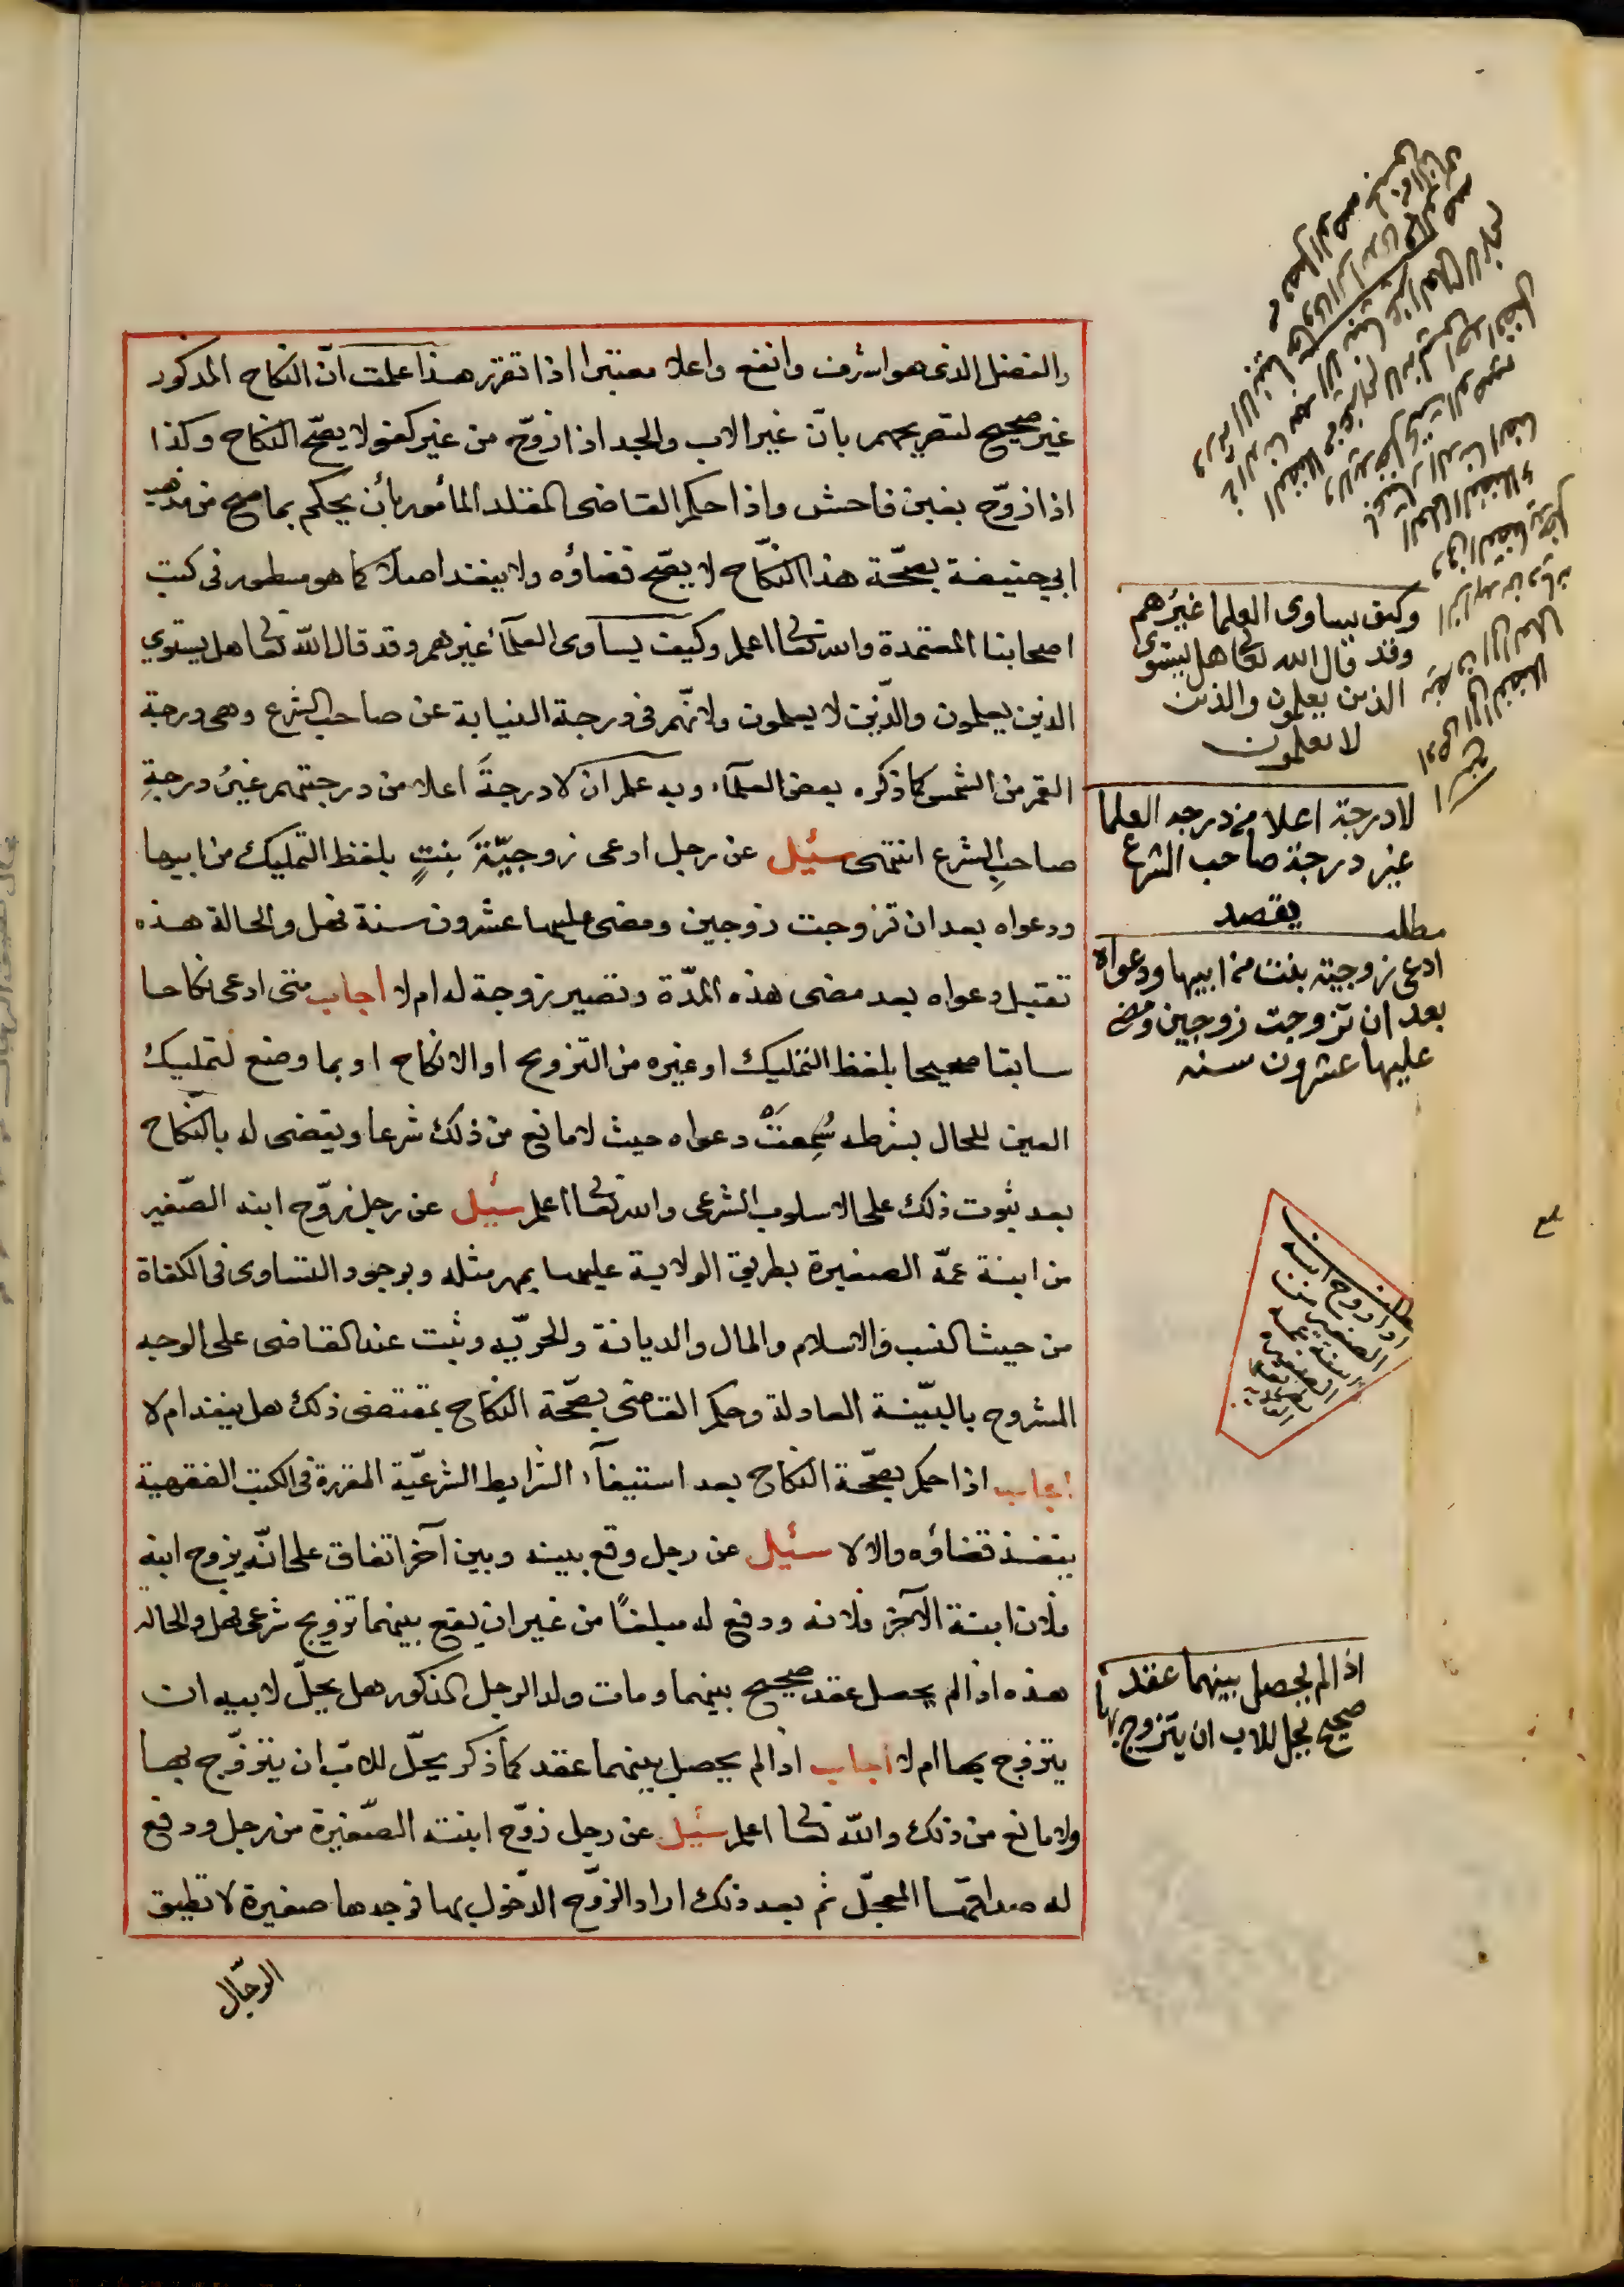 والفضل الذى هو اشرف وانفع واعلا معتبرا اذا تقرر هذا علمت انّ النكاح المذكور
غير صحيح لتصريحهم بانّ غير الاب والجد اذا زوّج من غير كفو لا يصحّ النكاح وكذا
اذا زوّج بغبن فاحش واذا حكم القاضى المقلد المأمور بأن يحكم بما صح من مذهب
ابي حنيفة بصحّة هذا النكّاح لا يصّح قضاؤه ولا ينفذ اصلا كما هو مسطور فى كتب
اصحابنا المعتمدة والله تعالى اعلم وكيف يساوى العلمآء غيرهم وقد قال الله تعالى هل يستوي
الذين يعلمون والّذين لا يعلمون ولانّهم فى درجة النيابة عن صاحب الشرع وهى درجة
القمر من الشمس كما ذكره بعض العلمآء وبه علم ان لا درجةَ اعلا من درجتهم غيرُ درجةِ
صاحبِ الشرع انتهى سئيل عن رجل ادعى زوجيّةَ بِنتٍ بلفظ التمليك من ابيها
ودعواه بعد ان تزوجت زوجين ومضى عليها عشرون سنة فهل والحالة هذه
تقبل دعواه بعد مضى هذه المدّة وتصير زوجة له ام لا اجاب متى ادعى نكاحا
سابقا صحيحا بلفظ التمليك او غيره من التزويج او الانكاح او بما وضع لتمليك
العين للحال بشرطه سُمِعَتْ دعواه حيث لا مانع من ذلك شرعا ويقضى له بالنّكاح
بعد ثبوت ذلك على الاسلوب الشرعى والله تعالى اعلم سئيل عن رجل زوّج ابنه الصّغير
من ابنة عمّه الصغيرة بطريق الولاية عليهما بمهر مثله وبوجود التساوى فى الكفاة
من حيث النسب والاسلام والمال والديانة والحريّه وثبت عند القاضى على الوجه
المشروح بالبيّنة العادلة وحكم القاضى بصحّة النكاح بمقتضى ذلك هل ينفذ ام لا
اجاب اذا حكم بصحّة النكاح بعد استيفآء الشرايط الشرعيّة المقررة فى الكتب الفقهية
ينفذ قضاؤه والا لا سئيل عن رجل وقع بينه وبين آخر اتفاق على انّه يزوج ابنه
فلان ابنة الآخر فلانه ودفع له مبلغًا من غير ان يقع بينهما تزويج شرعى فهل والحاله
هذه اذا لم يحصل عقد صحيح بينهما ومات ولد الرجل المذكور هل يحلّ لابيه ان
يتزوج بها ام لا اجاب اذا لم يحصل بينهما عقد كما ذكر يحلّ للابّ ان يتزوّج بها
ولا مانع من ذلك والله تعالى اعلم سئيل عن رجل زوّج ابنته الصّغيرة من رجل ودفع
له صداقها المعجّل ثم بعد ذلك اراد الزوّج الدّخول بها فوجدها صغيرة لا تطيق
الرجّال
وكيف يساوى العلما غيرُهم
وقد قال الله تعالى هل يستوى
الذين يعلمون والذين
لا يعلمون
لا درجة اعلا من درجه العلما
غير درجة صاحب الشرع
يقصد
مطلب
ادعى زوجية بنت من ابيها ودعواه
بعد ان تزوجت زوجين ومضى
عليها عشرون سنه
اذا لم يحصل بينهما عقد
صحيح يحل للاب ان يتزوج بها